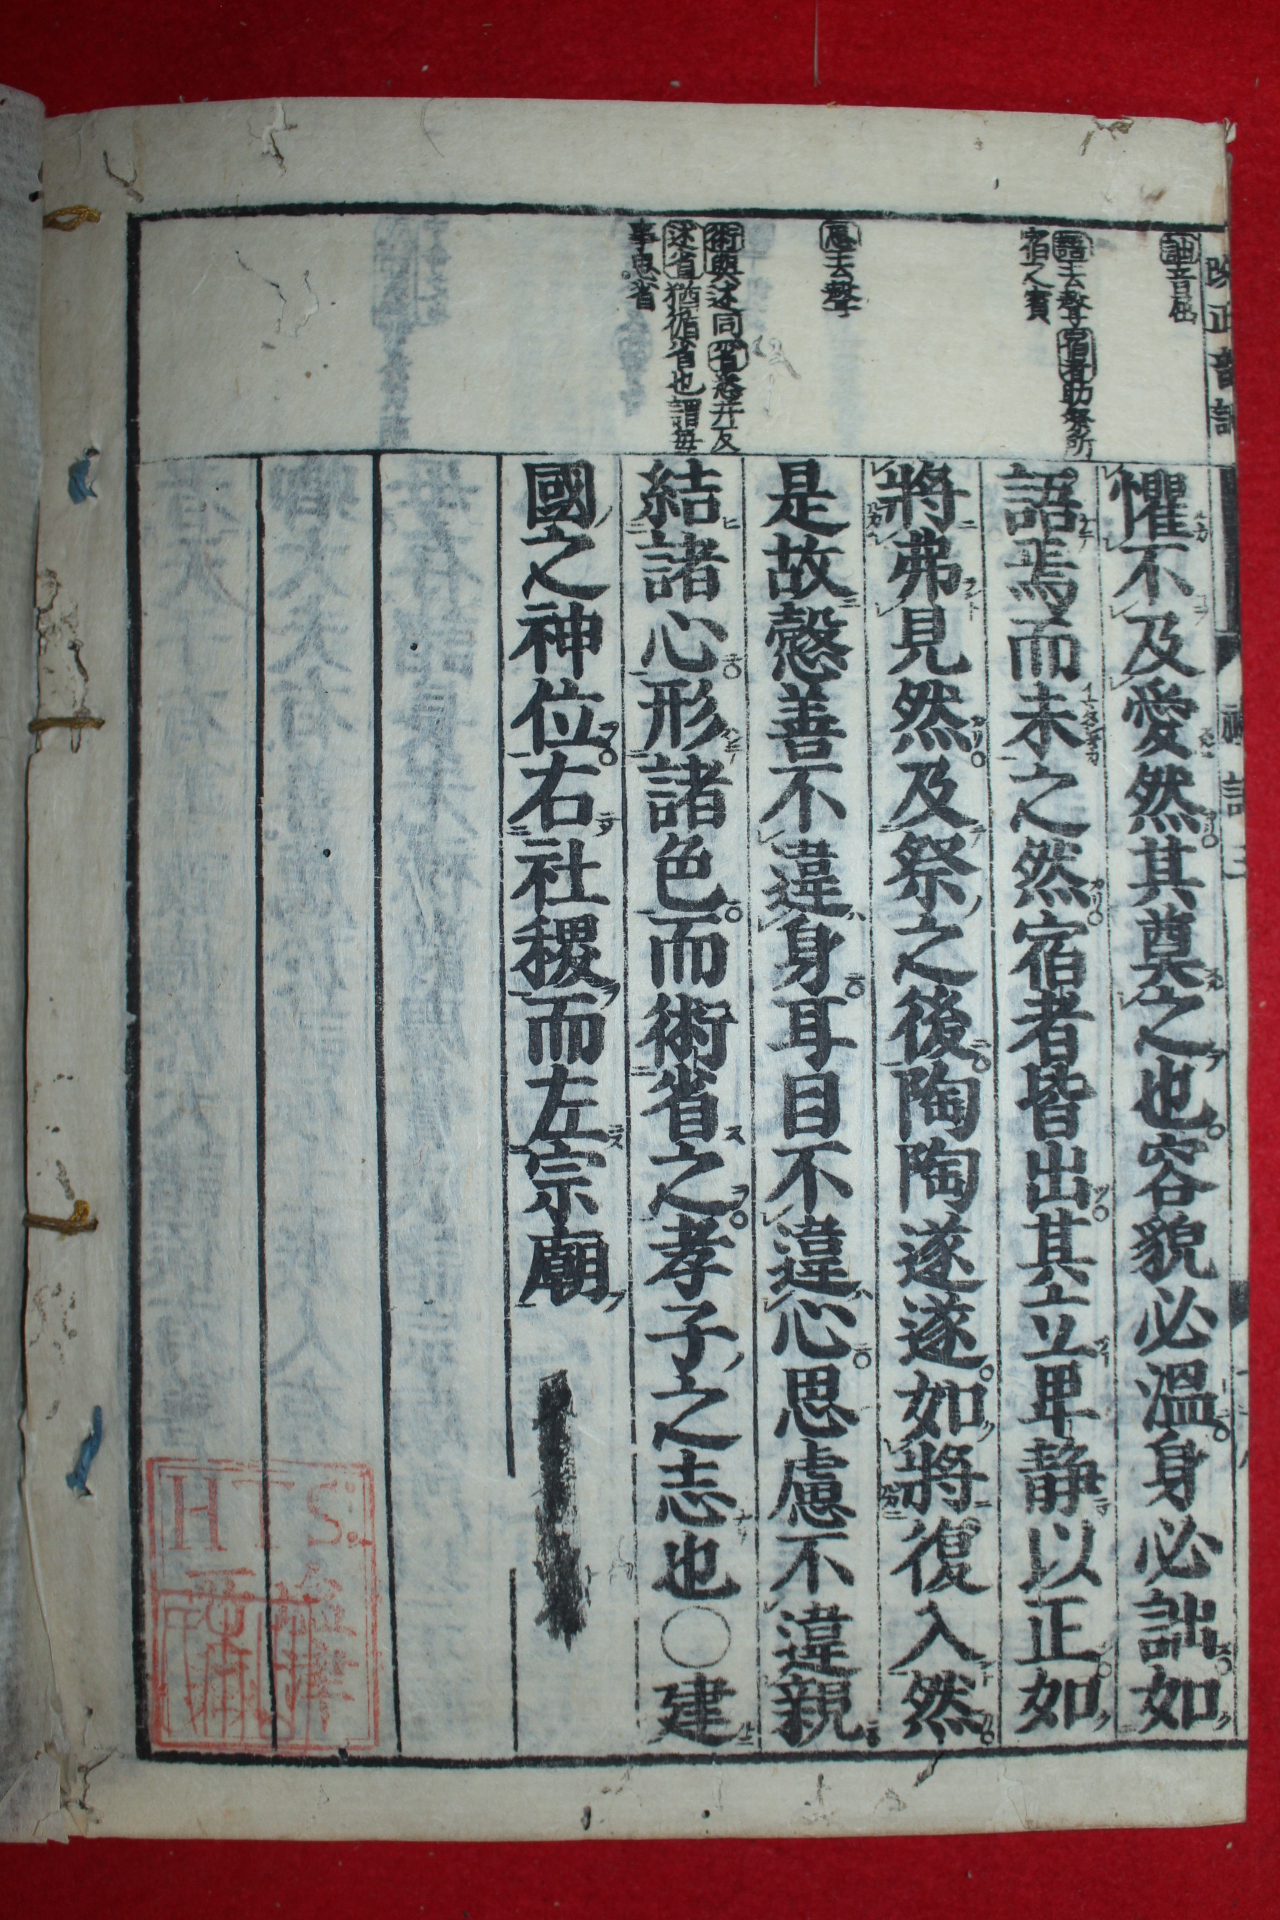 改正音訓
禮記三
詘音屈
語去聲宿者助祭所
宿之賓
思去聲
術與述同省悉井反
述省猶循省也謂每
事思省
懼不及愛然其奠之也容貌必溫身必詘如
語焉而未之然宿者皆出其立卑靜以正如
將弗見然及祭之後陶陶遂遂如將復入然
是故慤善不違身耳目不違心思慮不違親
結諸心形諸色而術省之孝子之志也〇建
國之神位右社稷而左宗廟